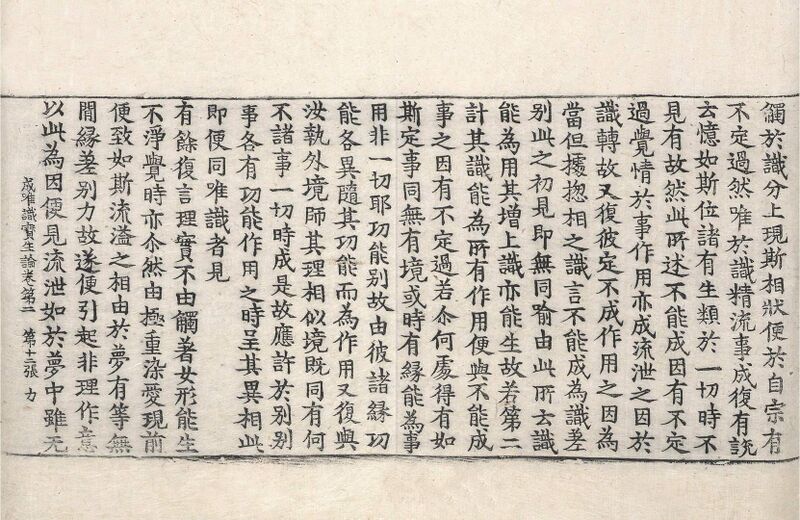 觸於識分上現斯相狀便於自宗有
不定過然唯於識精流事成復有說
去憶如斯位諸有生類於一切時不
見有故然此所述不能成因有不定
過覺情於事作用亦成流泄之因於
識轉故又復彼定不成作用之因為
當但據揔相之識言不能成為識差
別此之初見即無同喻由此所去識
能為用其增上識亦能生故若第二
計其識能為所有作用便與不能成
事之因有不定過若尒何處得有如
斯定事同無有境或時有緣能為事
用非一切耶功能別故由彼諸緣功
能各異隨其功能而為作用又復與
汝執外境師其理相似境既同有何
不諸事一切時成是故應許於別別
事各有功能作用之時呈其異相此
即便同唯識者見
有餘復言理實不由觸著女形能生
不淨覺時亦尒然由極重染愛現前
便致如斯流溢之相由於夢有等無
間緣差別力故遂便引起非理作意
以此為因便見流泄如於夢中雖无
成唯識寶生論卷第二 第十二張 力